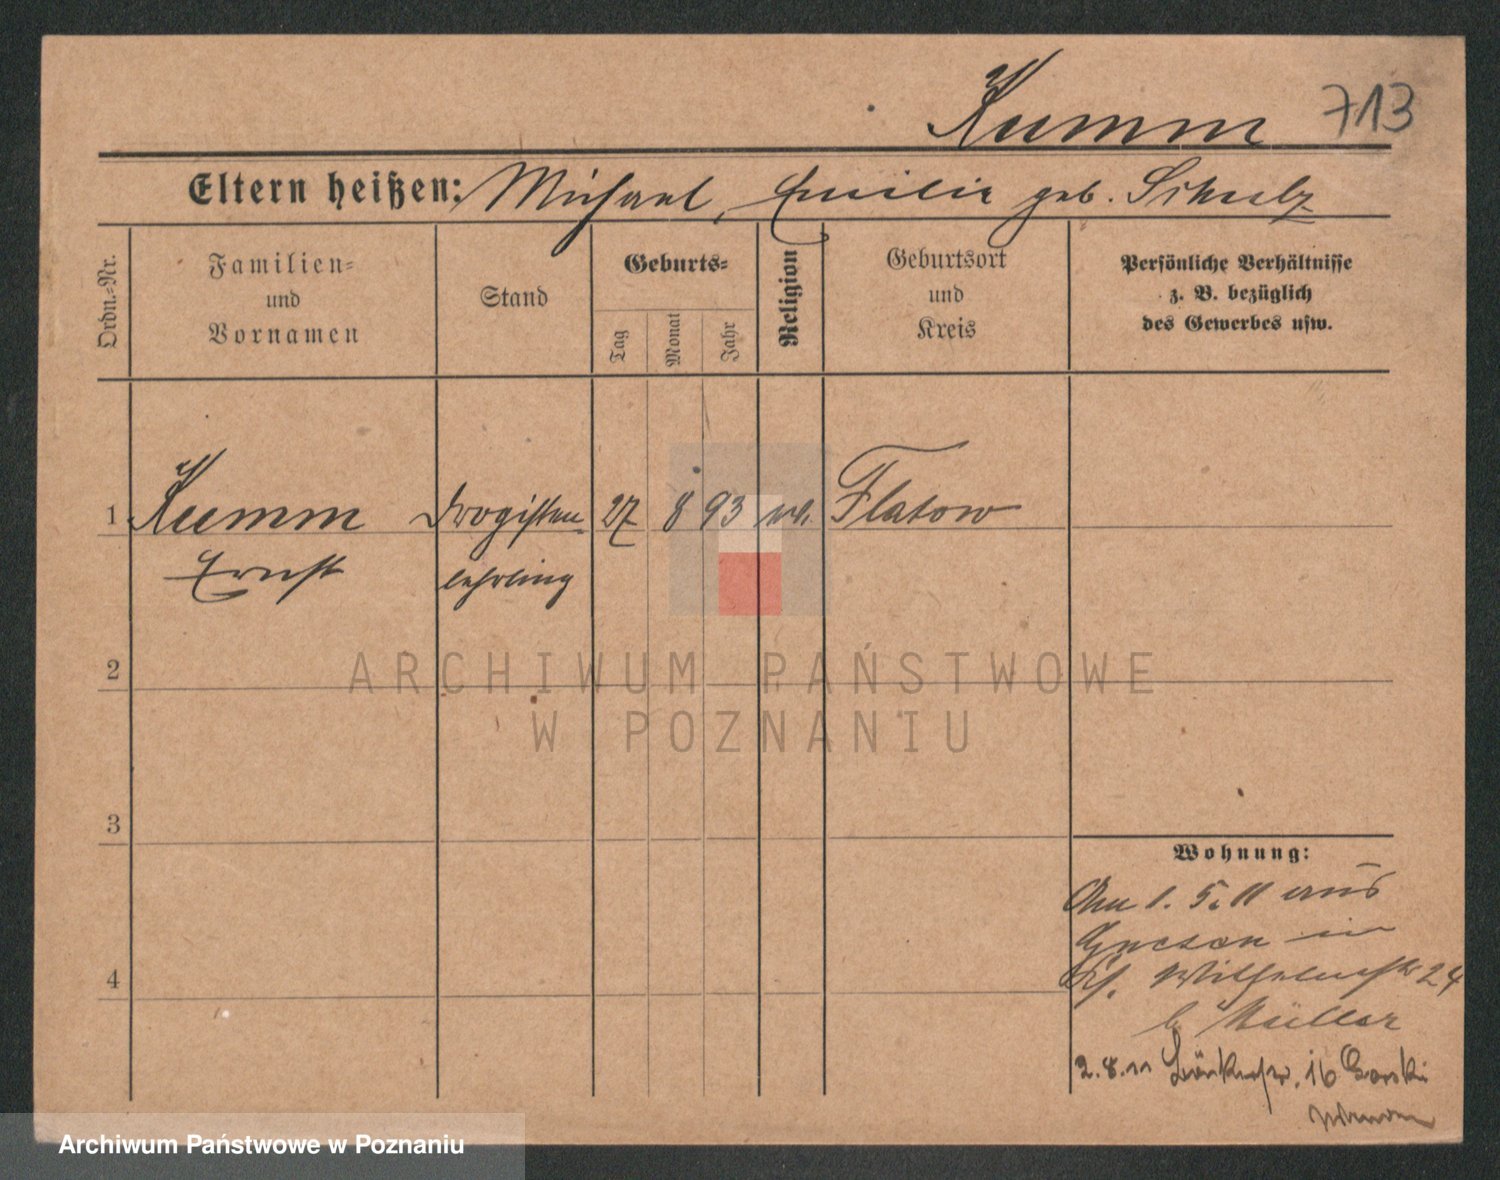 Kumm 713
Eltern heißen: Michael, Emilie geb. Schulz
Ordn.-Nr.
Familien-
und
Vornamen
Stand
Geburts-
Tag
Monat
Jahr
Religion
Geburtsort
und
Kreis
Persönliche Verhältnisse
z. B. bezüglich
des Gewerbes usw.
1 Kumm Drogisten 27 8 93 ev. Flatow
Ernst lehrling
2
3
4
Wohnung:
Am 1. 5. 11 aus
Gnesen in
Wilhelmstr 24
b Müller
2.8.11 16 Gorski
ARCHIWUM PAŃSTWOWE
W POZNANIU
Archiwum Państwowe w Poznaniu